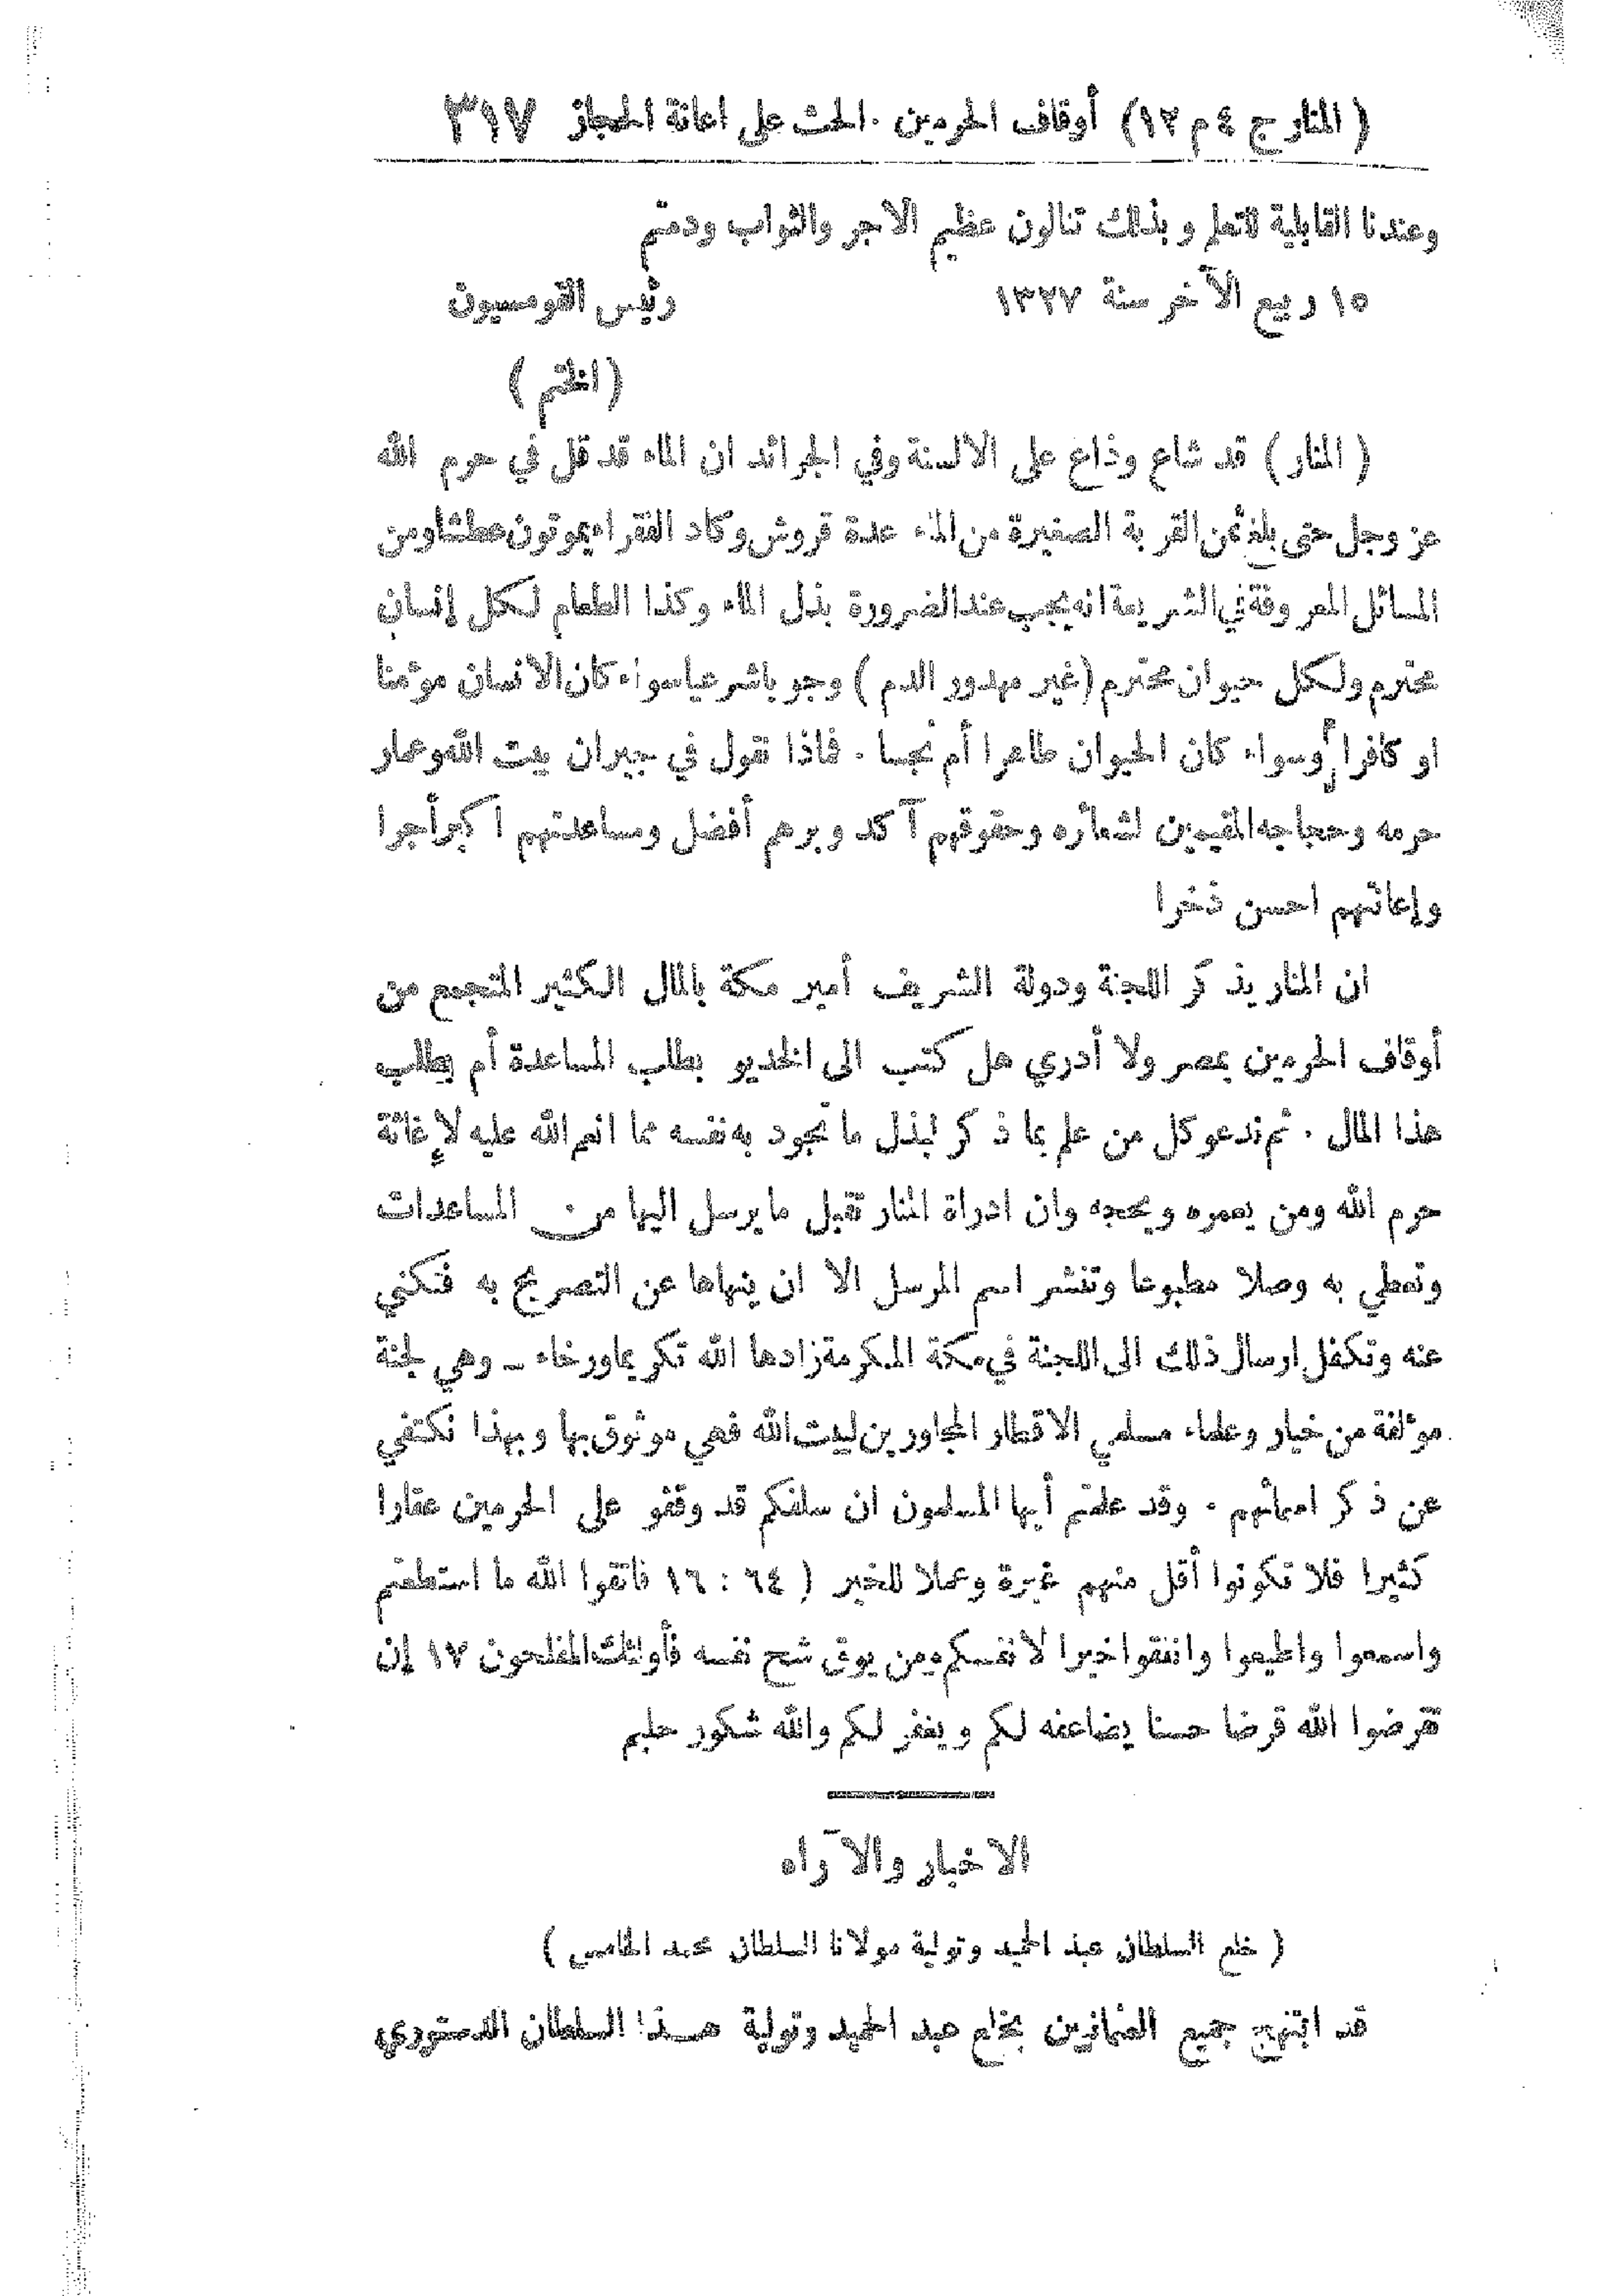 ( المنار ج ٤ م ١٢ ) أوقاف الحرمين . الحث على اعانة الحجاز ٣١٧
وعندنا القابلية للتعلم وبذلك تنالون عظيم الاجر والثواب ودمتم
١٥ ربيع الآخر سنة ١٣٢٧ رئيس القومسيون
( الختم )
( المنار ) قد شاع وذاع على الالسنة وفي الجرائد ان الماء قد قل في حرم الله
عز وجل حتى بلغ ثمن القربة الصغيرة من الماء عدة قروش وكاد الفقراء يموتون عطشا ومن
المسائل المعروفة في الشريعة انه يجب عند الضرورة بذل الماء وكذا الطعام لكل إنسان
محترم ولكل حيوان محترم ( غير مهدور الدم ) وجوبا شرعيا سواء كان الانسان مؤمنا
او كافرا وسواء كان الحيوان طاهرا أم نجسا . فماذا نقول في جيران بيت الله وعمار
حرمه وحجاجه المقيمين لشعائره وحقوقهم آكد وبرهم أفضل ومساعدتهم اكبر أجرا
وإعانتهم احسن ذخرا
ان المنار يذكر اللجنة ودولة الشريف أمير مكة بالمال الكثير المتجمع من
أوقاف الحرمين بمصر ولا أدري هل كتب الى الخديو بطلب المساعدة أم بطلب
هذا المال . ثم ندعو كل من علم بما ذكر لبذل ما تجود به نفسه مما انعم الله عليه لإغاثة
حرم الله ومن يعمره ويحجه وان ادراة المنار تقبل ما يرسل اليها من المساعدات
وتعطي به وصلا مطبوعا وتنشر اسم المرسل الا ان ينهاها عن التصريح به فتكني
عنه وتكفل ارسال ذلك الى اللجنة في مكة المكرمة زادها الله تكريما ورخاء ــ وهي لجنة
مؤلفة من خيار وعلماء مسلمي الاقطار المجاورين لبيت الله فهي موثوق بها وبهذا نكتفي
عن ذكر اسمائهم . وقد علمتم أيها المسلمون ان سلفكم قد وقفو على الحرمين عقارا
كثيرا فلا تكونوا أقل منهم غيرة وعملا للخير ( ٦٤ : ١٦ فاتقوا الله ما استطعتم
واسمعوا واطيعوا وانفقوا خيرا لانفسكم ومن يوق شح نفسه فأولئك المفلحون ١٧ إن
تقرضوا الله قرضا حسنا يضاعفه لكم ويغفر لكم والله شكور حليم
الاخبار والآراء
( خلع السلطان عبد الحميد وتولية مولانا السلطان محمد الخامس )
قد ابتهج جميع العثمانيين بخلع عبد الحميد وتولية هذا السلطان الدستوري